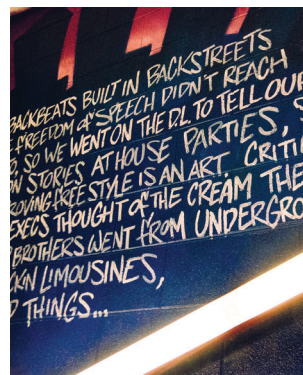 BACKBEATS BUILT IN BACKSTREETS
FREEDOM of SPEECH DIDN'T REACH
SO WE WENT ON THE D.L. TO TELL OUR
STORIES AT HOUSE PARTIES,
FREESTYLE IS AN ART
EXECS THOUGHT of THE CREAM
BROTHERS WENT FROM
LIMOUSINES,
THINGS...